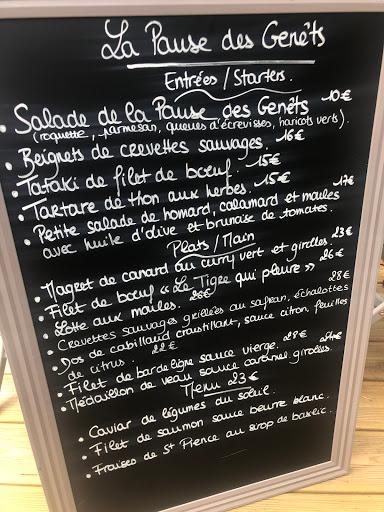 La Pause des Genêts
Entrées / Starters.
• Salade de la Pause des Genêts 10€
(roquette, parmesan, queues d'écrevisses, haricots verts).
• Beignets de crevettes sauvages. 16€
• Tataki de filet de bœuf. 15€
• Tartare de thon aux herbes. 15€
• Petite salade de homard, calamard et moules 17€
avec huile d'olive et brunaise de tomates.
Plats / Main
• Magret de canard au curry vert et girolles. 23€
• Filet de bœuf "Le Tigre qui pleure" 26€
• Lotte aux moules. 26€
• Crevettes sauvages grillées au safran, échalottes 28€
• Dos de cabillaud croustillant, sauce citron, feuilles
de citrus. 22€
• Filet de bar de ligne sauce vierge. 28€
• Médaillon de veau sauce caramel girolles.
Menu 23€
• Caviar de légumes du soleil.
• Filet de saumon sauce beurre blanc.
• Fraises de St Pierre au sirop de basilic.